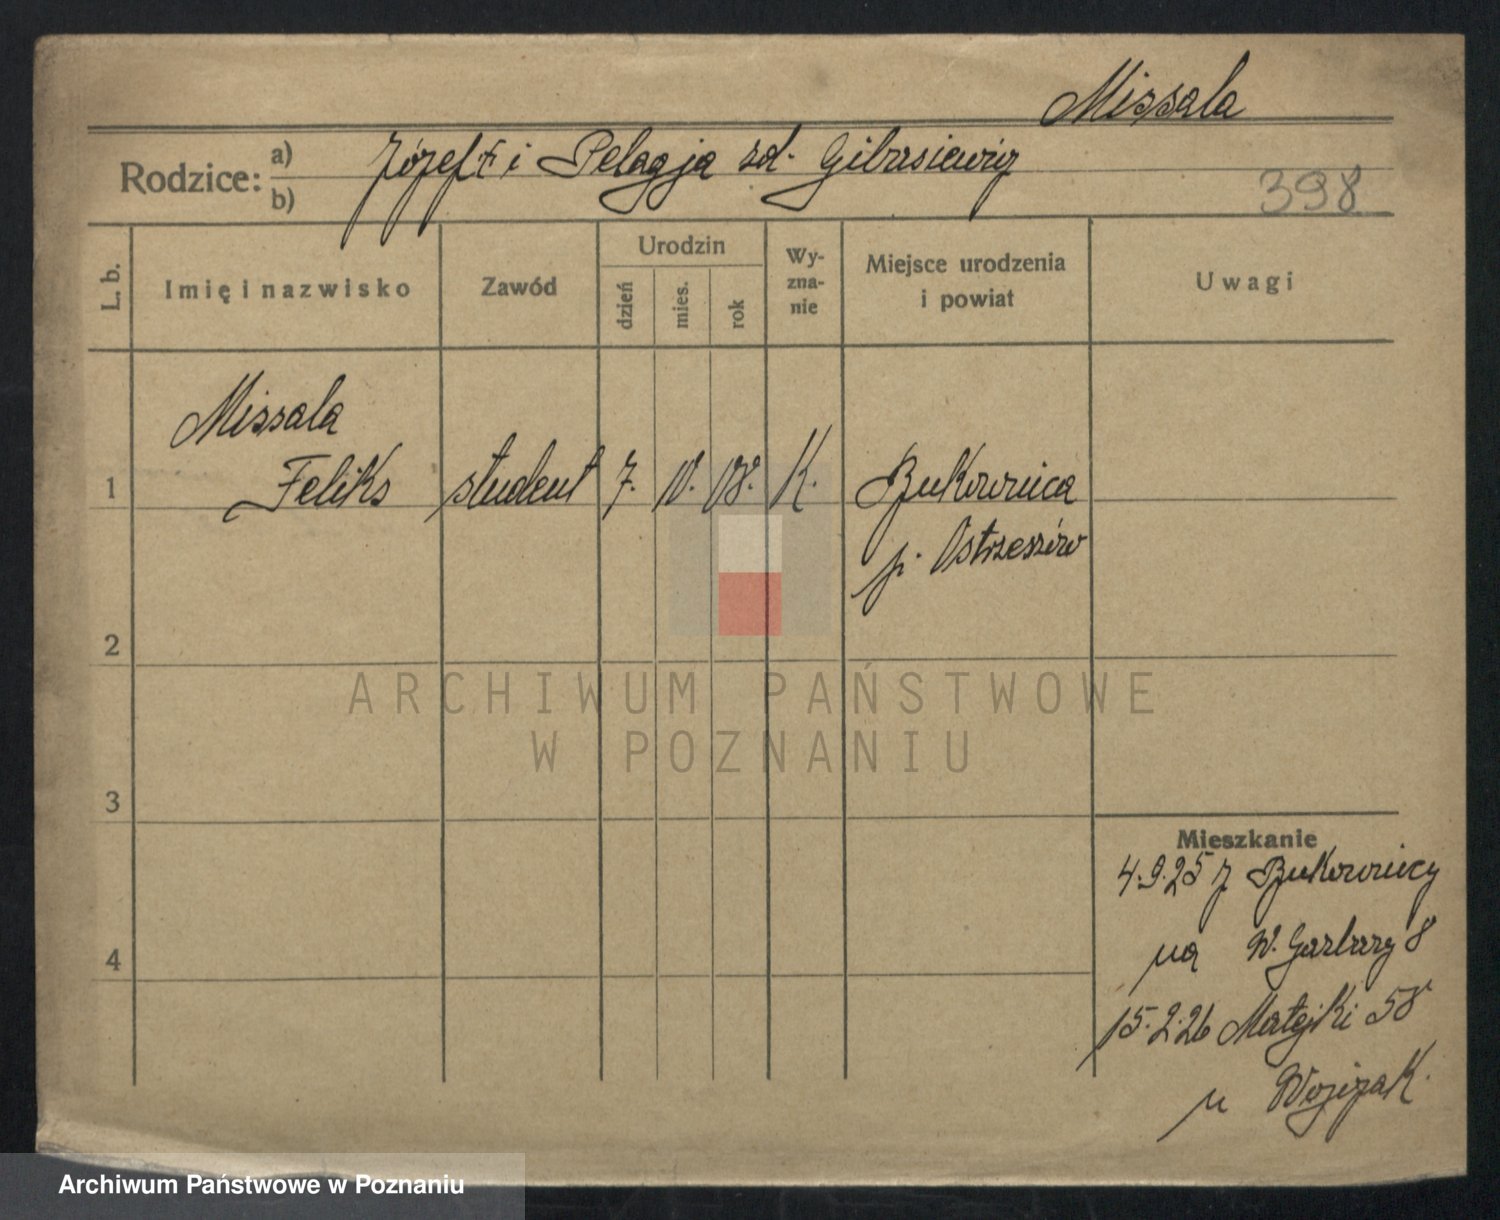 Missala
Rodzice: a) Józef † i Pelagja zd. Gibasiewicz
b)
398
L. b. Imię i nazwisko Zawód Urodzin dzień mies. rok Wy-zna-nie Miejsce urodzenia i powiat Uwagi
Missala
1 Feliks student 7. IV. 08. K. Bukownica
p. Ostrzeszów
2
ARCHIWUM PAŃSTWOWE
W POZNANIU
3
Mieszkanie
4.9.25 z Bukownicy
na W. Garbary 8
4
15.2.26 Matejki 58
u Wojczak.
Archiwum Państwowe w Poznaniu